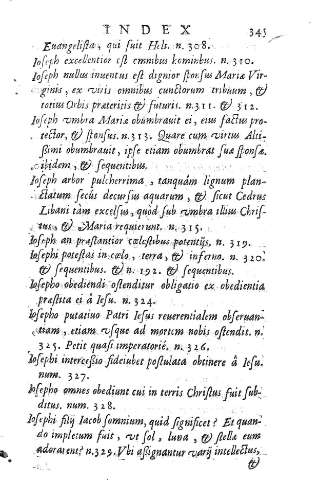 INDEX 345
Euangelista, qui fuit Heli. n. 308.
Ioseph excellentior est omnibus hominibus. n. 310.
Ioseph nullus inuentus est dignior sponsus Mariæ Vir-
ginis, ex viris omnibus cunctorum tribuum, &
totius Orbis præteritis & futuris. n. 311. & 312.
Ioseph vmbra Mariæ obumbrauit ei, eius factus pro-
tector, & sponsus. n. 313. Quare cum virtus Alti-
ssimi obumbrauit, ipse etiam obumbrat suæ sponsæ.
ibidem, & sequentibus.
Ioseph arbor pulcherrima, tanquàm lignum plan-
ctatum secùs decursus aquarum, & sicut Cedrus
Libani tàm excelsus, quòd sub vmbra illius Chris-
tus, & Maria requierunt. n. 315.
Ioseph an præstantior cœlestibus potentijs, n. 319.
Iosephi potestas in cœlo, terra, & inferno. n. 320.
& sequentibus. & n. 192. & sequentibus.
Iosepho obediendi ostenditur obligatio ex obedientia
præstita ei à Iesu. n. 324.
Iosepho putatiuo Patri Iesus reuerentialem obseruan-
tiam, etiam vsque ad mortem nobis ostendit. n.
325. Petit quasi imperatoriè. n. 326.
Iosephi intercessio fideiubet postulata obtinere à Iesu.
num. 327.
Iosepho omnes obediunt cui in terris Christus fuit sub-
ditus. num. 328.
Iosephi filij Iacob somnium, quid significet? Et quan-
do impletum fuit, vt sol, luna, & stellæ eum
adorarent? n. 329. Vbi assignantur varij intellectus,
&